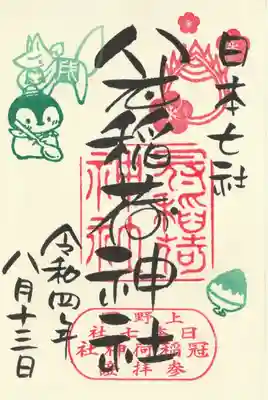 日本七社
冠稲荷神社
令和四年
八月十三日
上野
日本七社
冠稲荷神社